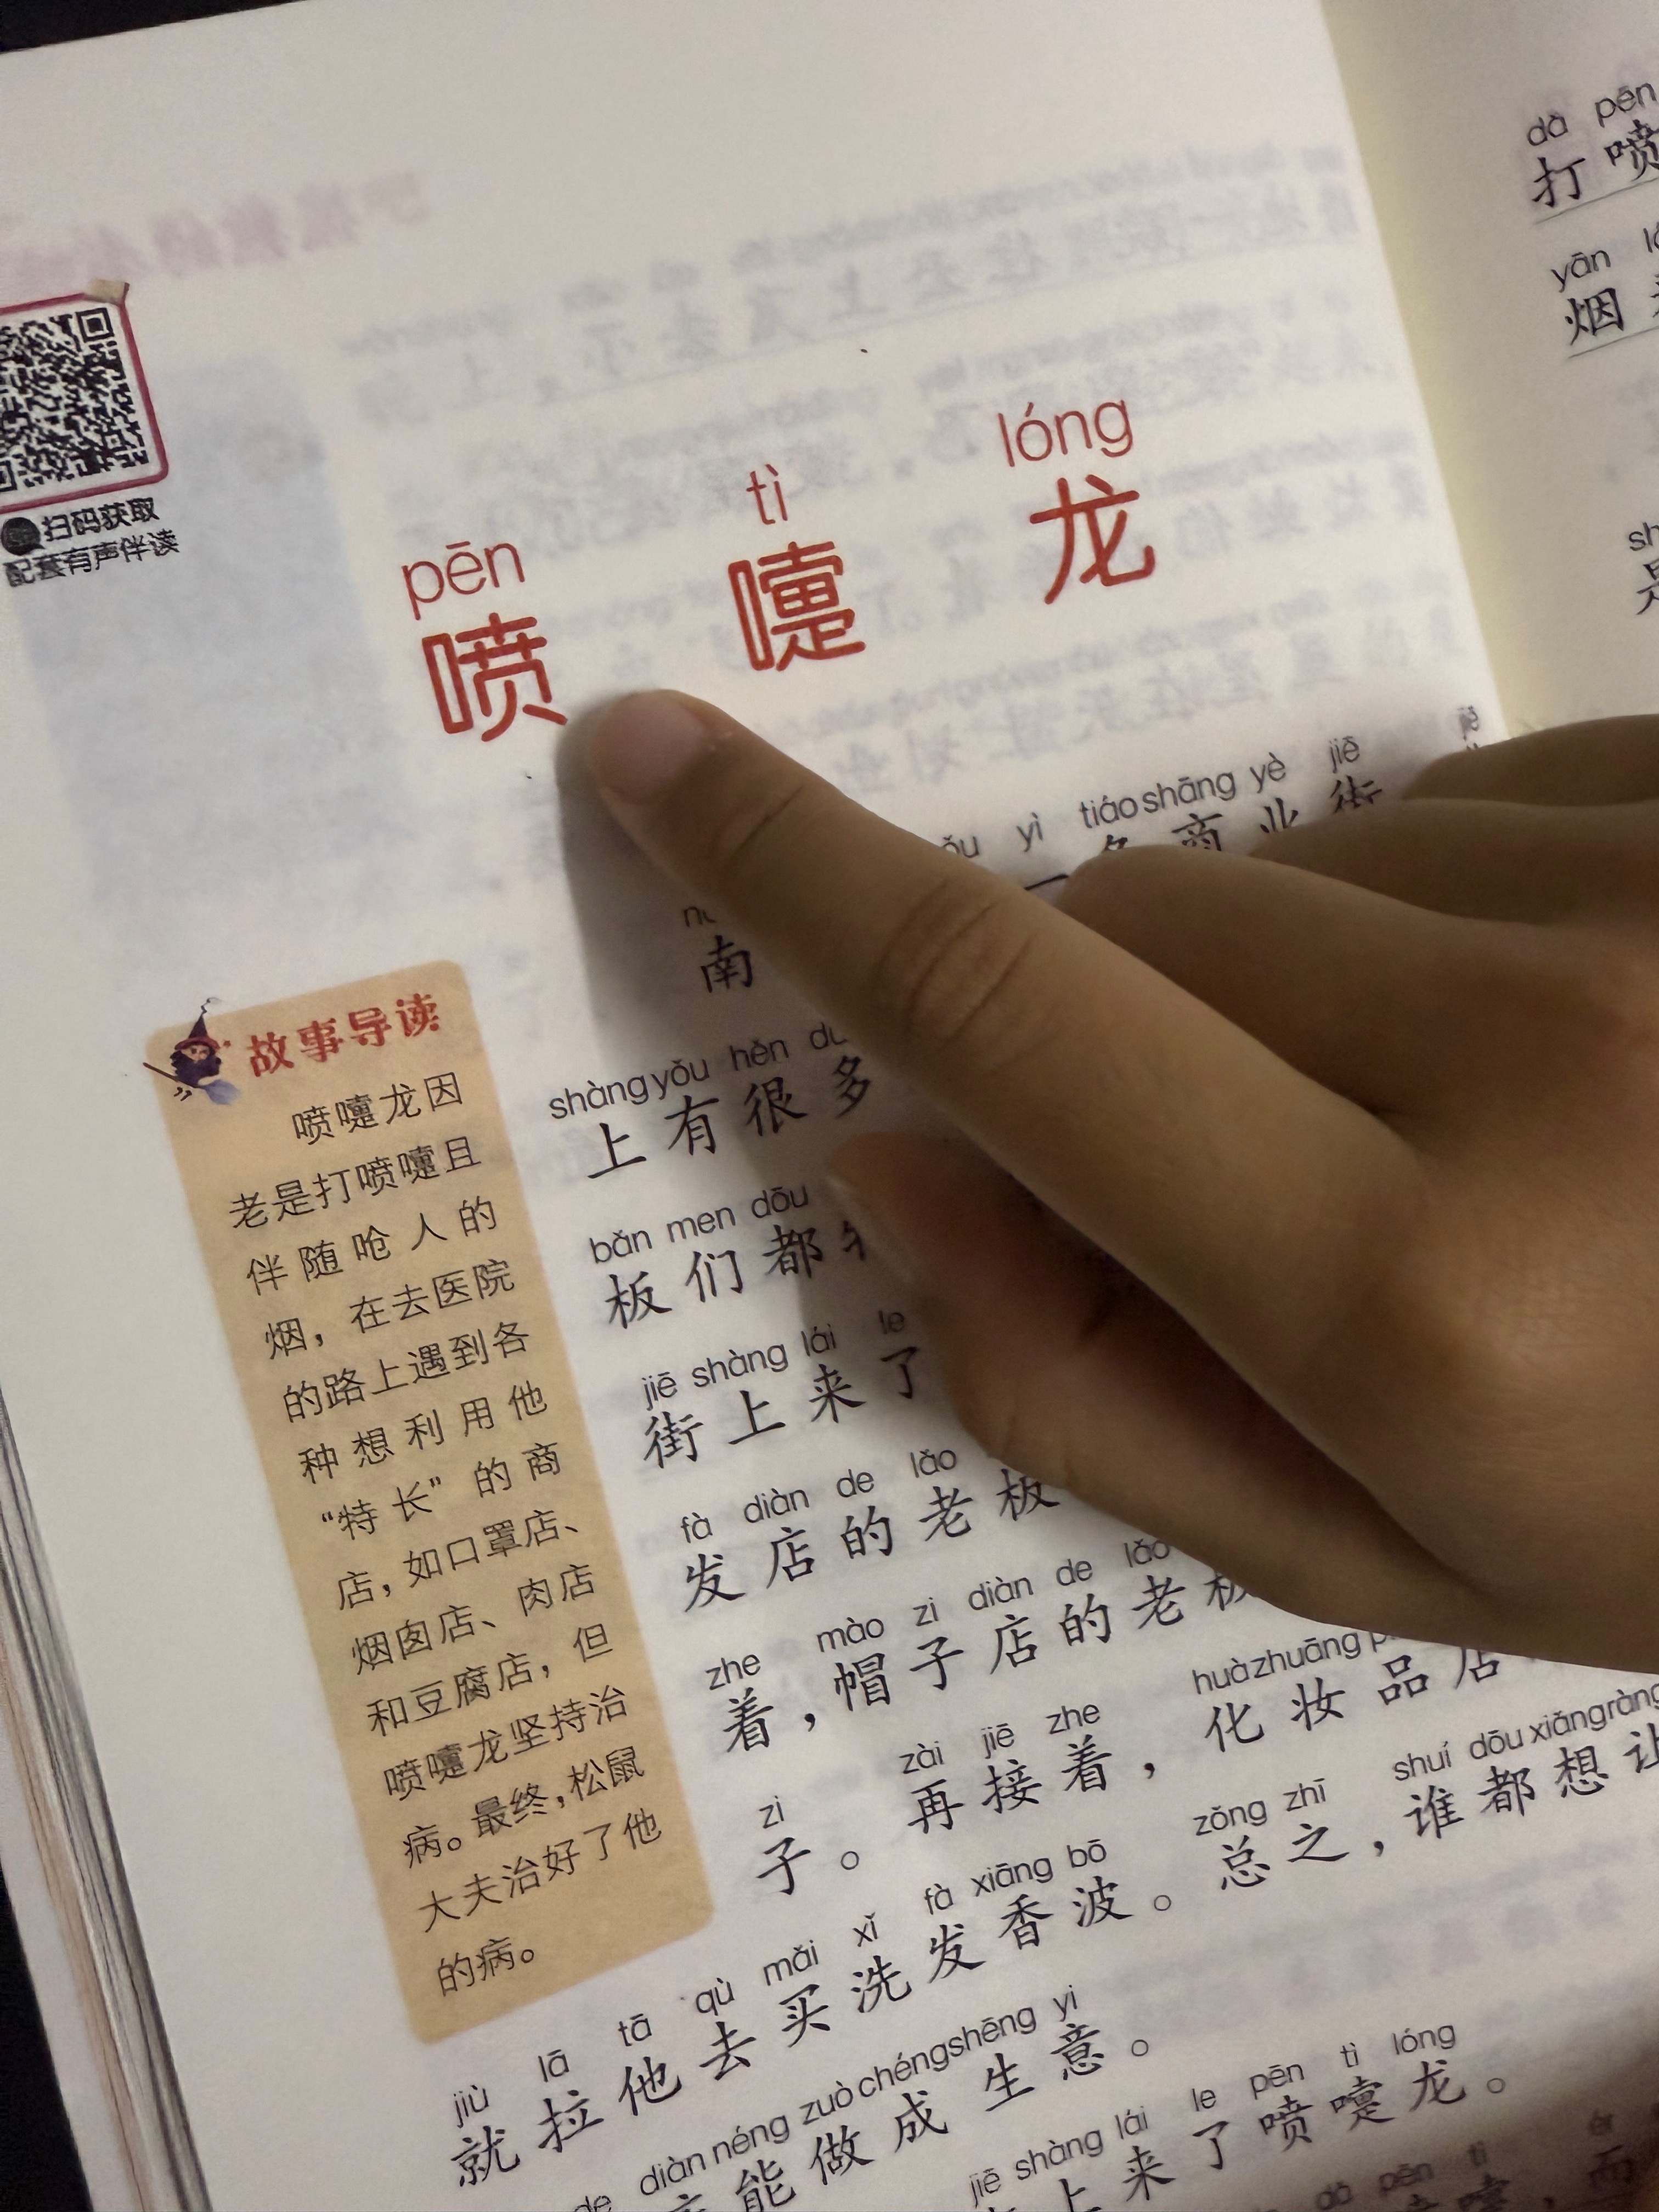 扫码获取
配套有声伴读
pēn tì lóng
喷嚏龙
故事导读
喷嚏龙因
老是打喷嚏且
伴随呛人的
烟，在去医院
的路上遇到各
种想利用他
“特长”的商
店，如口罩店、
烟囱店、肉店
和豆腐店，但
喷嚏龙坚持治
病。最终，松鼠
大夫治好了他
的病。
yì tiáo shāng yè jiē
一条商业街
南
shàng yǒu hěn
上有很多
bǎn men dōu
板们都
jiē shàng lái le
街上来了
fà diàn de lǎo
发店的老板
zhe mào zi diàn de lǎo
着，帽子店的老板
zi zài jiē zhe huà zhuāng
子。再接着，化妆品店
jiù lā tā qù mǎi xǐ fà xiāng bō zǒng zhī shuí dōu xiǎng ràng
就拉他去买洗发香波。总之，谁都想让
de diàn néng zuò chéng shēng yi
能做成生意。
jiē shàng lái le pēn tì lóng
上来了喷嚏龙。
dǎ pēn tì
dǎ pēn
打喷
yān
烟
是